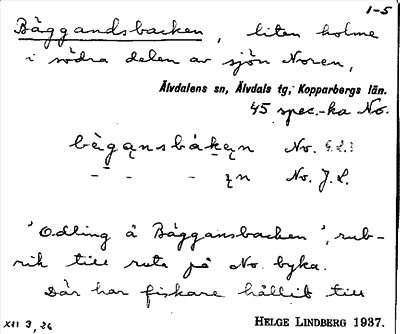 1-5
Bäggandsbacken, liten holme
i södra delen av sjön Noren,
Älvdalens sn, Älvdals tg, Kopparbergs län.
45 spec.-ka No.
No.
- - - No. J. L.
"Odling å Bäggansbacken", rub-
rik till ruta på No. byka.
Där har fiskare hållit till
XII 3, 26 HELGE LINDBERG 1937.